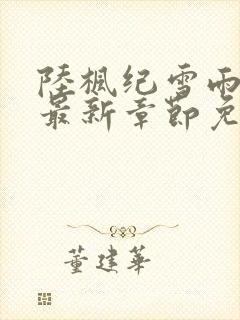 陸楓纪雪雨
最新章節免
董建華